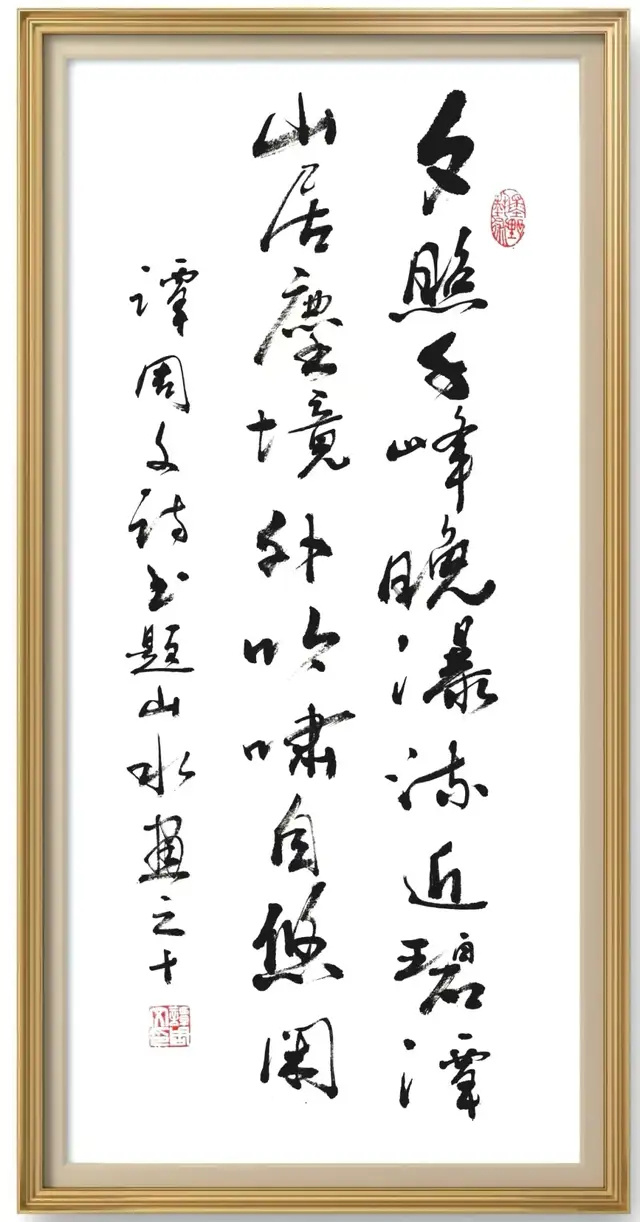 夕照千峰晚瀑流近碧潭
山居塵境外吟嘯自悠闲
谭周文诗书题山水畫之十